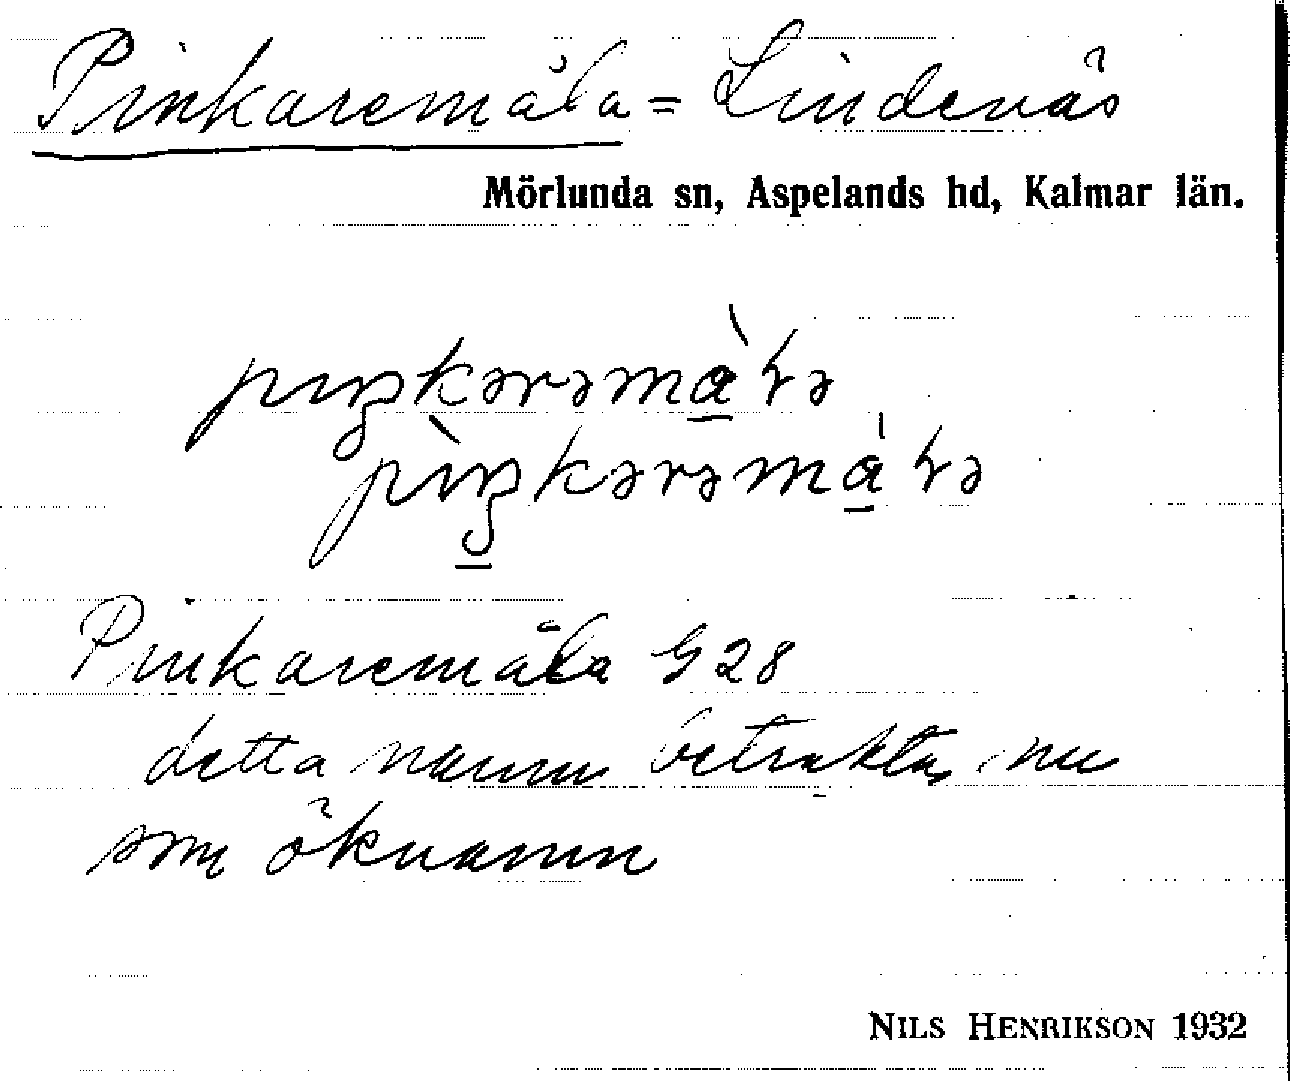 Pinkaremåla = Lindenäs
Mörlunda sn, Aspelands hd, Kalmar län.
pıŋkərəmὰ̱ɫə
pı̀ŋ̱kərəmά̱ɫə
Pinkaremåla G 28
detta namn betraktas nu
som öknamn
NILS HENRIKSON 1932